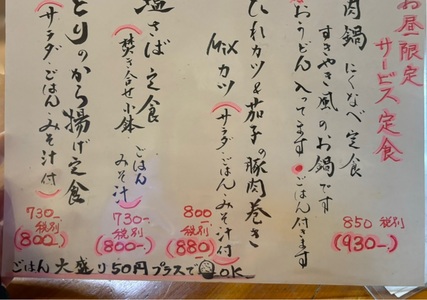 お昼限定
サービス定食
肉鍋 にくなべ定食
すきやき風のお鍋です
おうどん入ってます・ごはん付きます
850 税別
(930-)
ひれカツ&茄子の豚肉巻き
Mixカツ
(サラダ・ごはん・みそ汁付)
800-
税別
(880)
塩さば定食
(焚き合せ小鉢 ごはん みそ汁)
730-
税別
(800-)
とりのから揚げ定食
(サラダ・ごはん・みそ汁付)
730-
税別
(800-)
ごはん大盛り50円プラスでOK